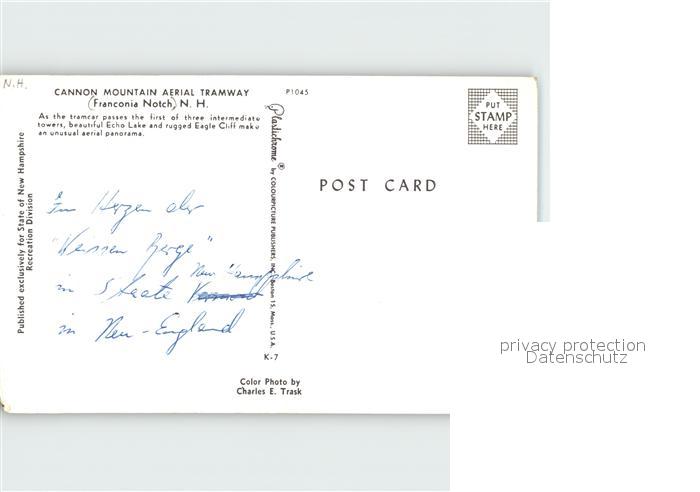 N.H.
CANNON MOUNTAIN AERIAL TRAMWAY
(Franconia Notch) N. H.
As the tramcar passes the first of three intermediate
towers, beautiful Echo Lake and rugged Eagle Cliff make
an unusual aerial panorama.
P1045
PUT
STAMP
HERE
POST CARD
Published exclusively for State of New Hampshire
Recreation Division
Plastichrome ® by COLOURPICTURE PUBLISHERS, INC., Boston 15, Mass., U.S.A.
Im Herzen der
"Weissen Berge"
in Staate Vermont New Hampshire
in Neu-England
K-7
Color Photo by
Charles E. Trask
privacy protection
Datenschutz